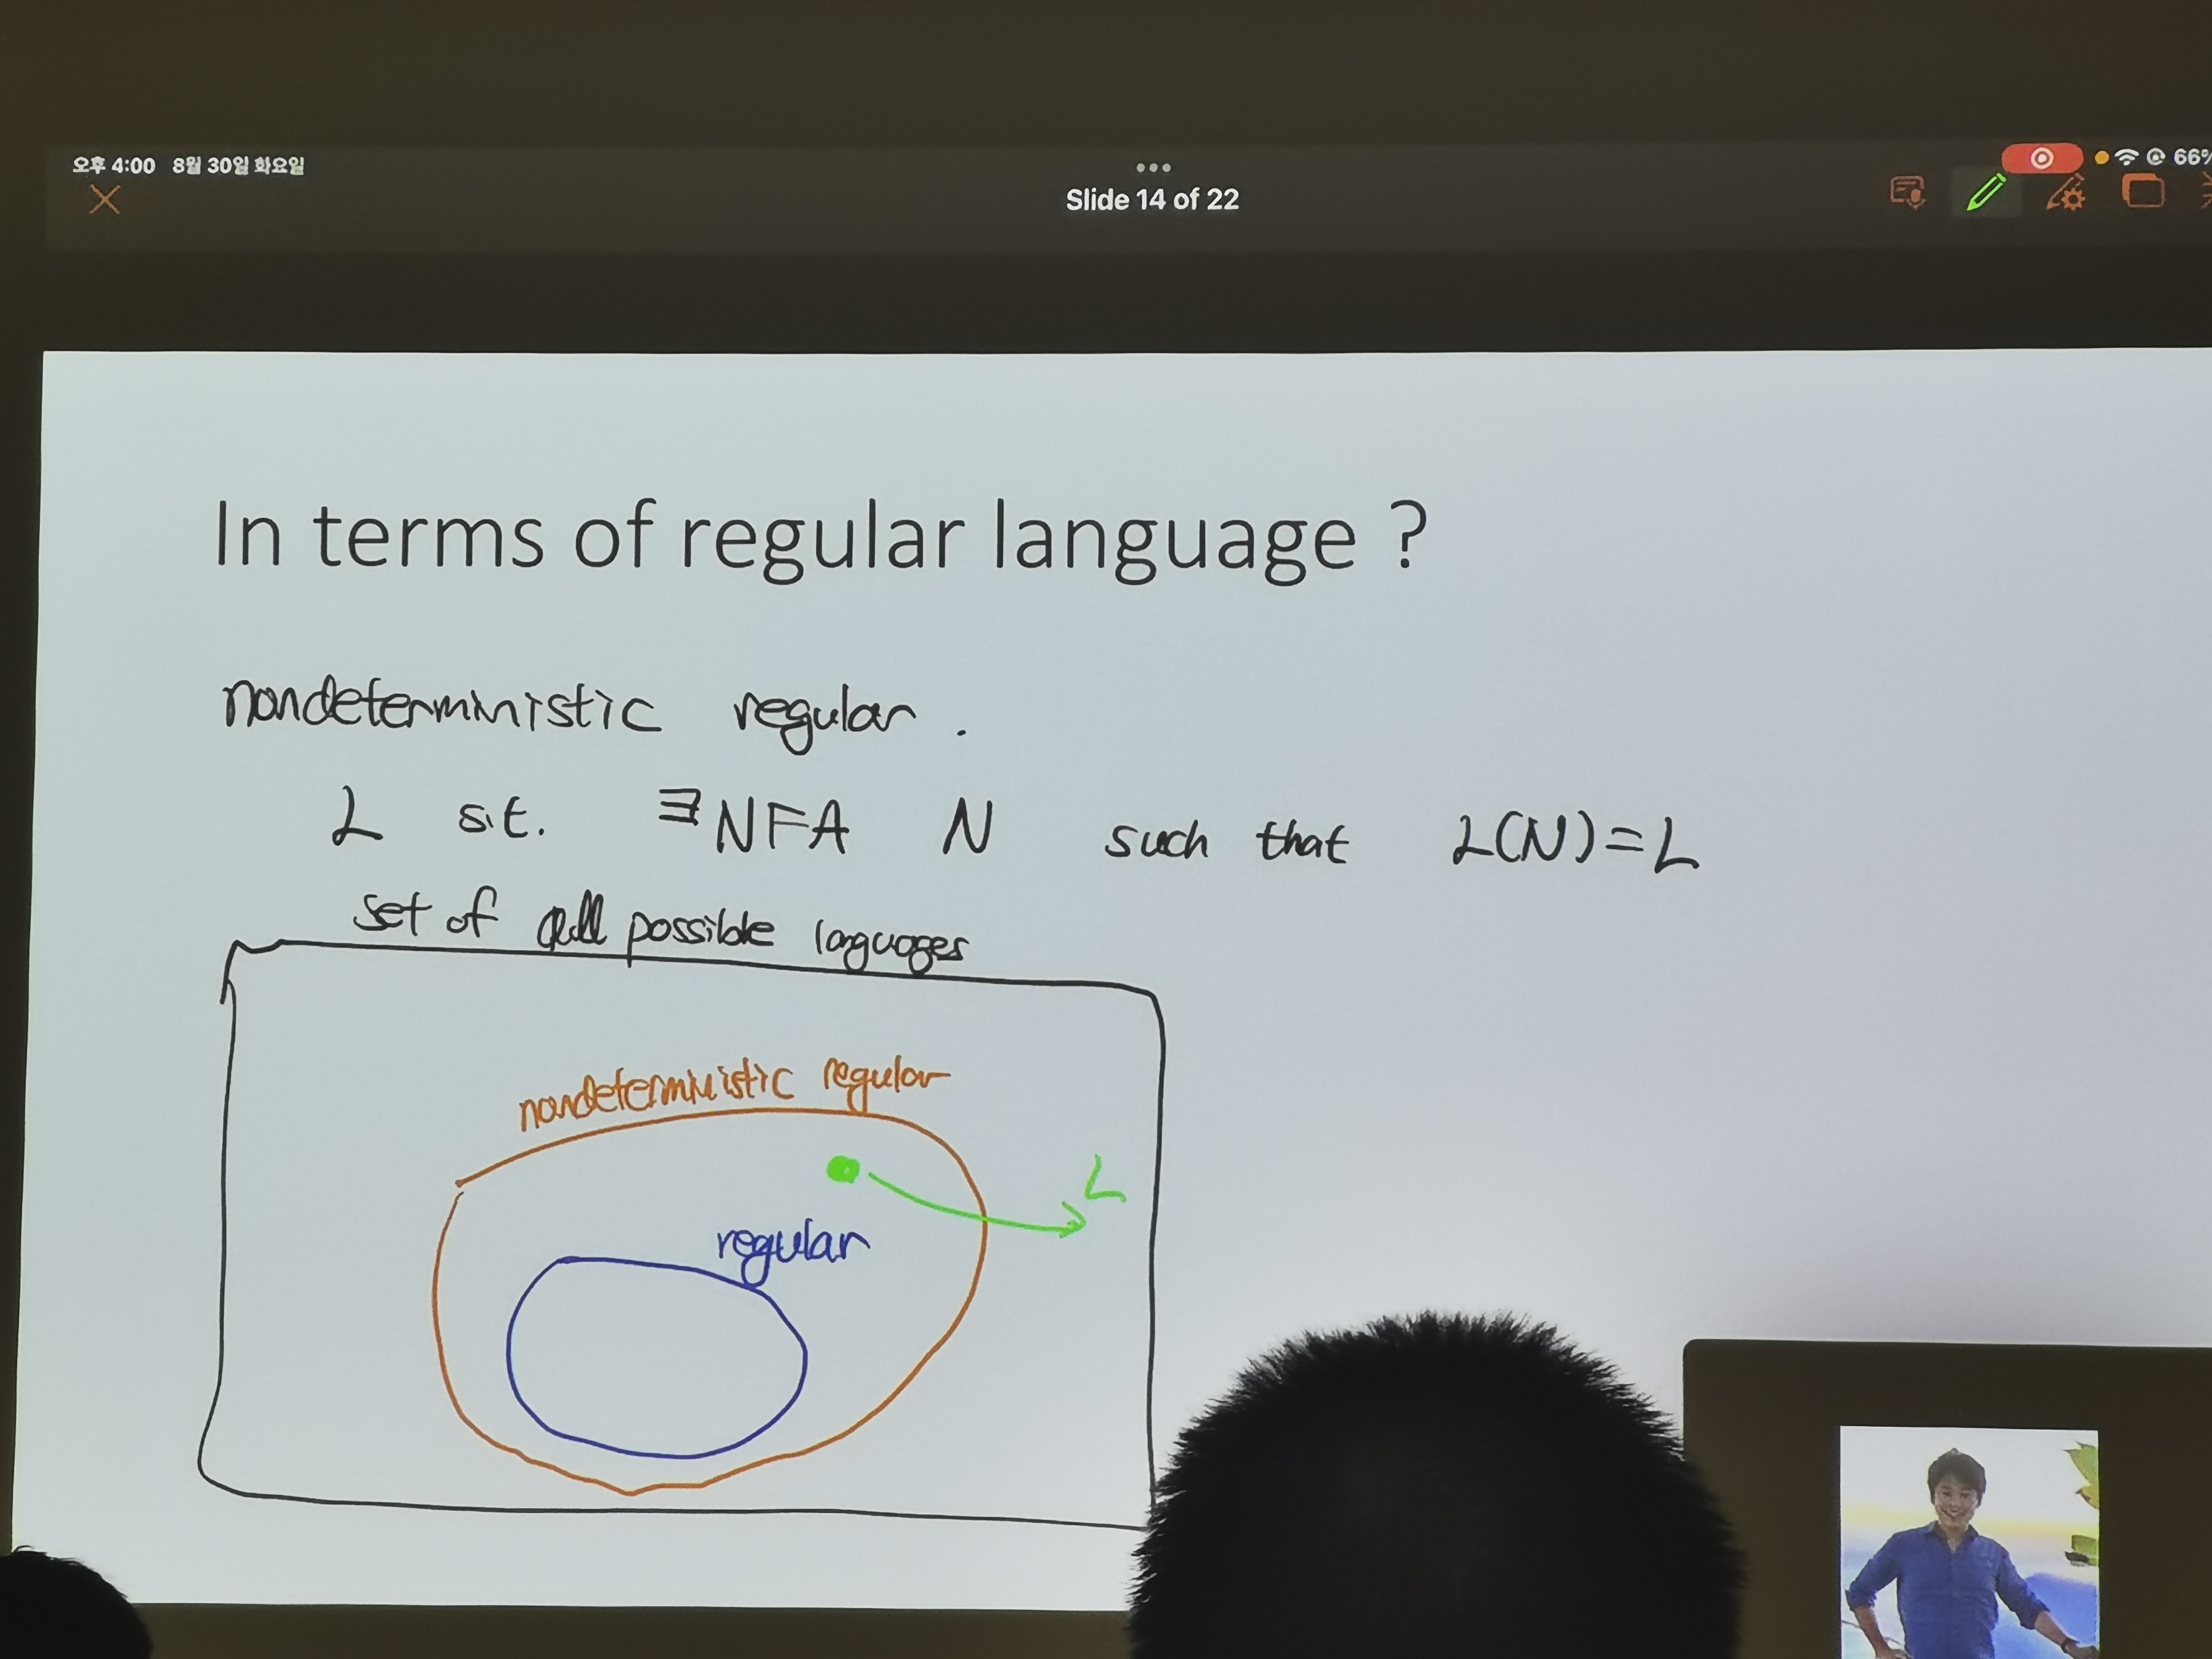 오후 4:00 8월 30일 화요일
66%
Slide 14 of 22
In terms of regular language ?
nondeterministic regular .
L s.t. ∃NFA N such that L(N)=L
set of all possible languages
nondeterministic regular
L
regular